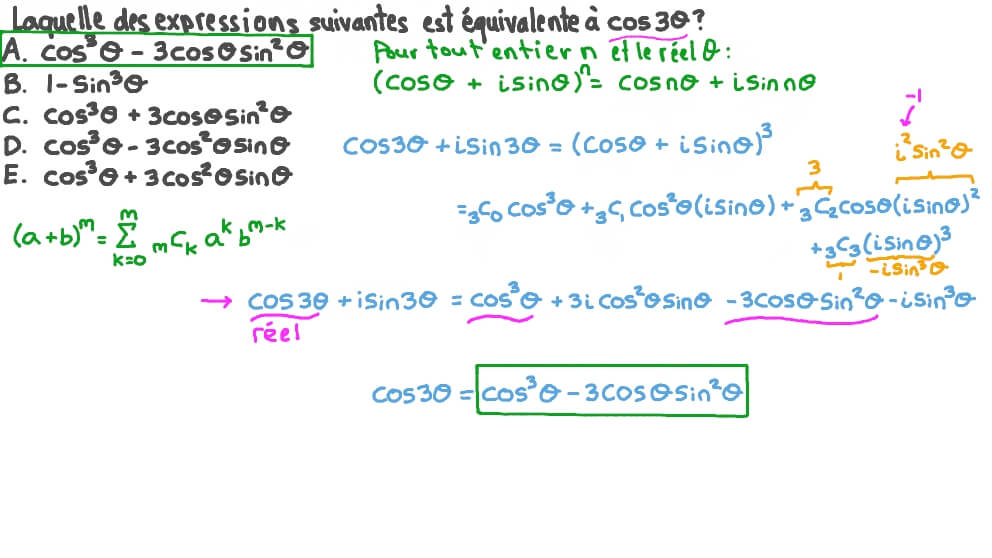 Laquelle des expressions suivantes est équivalente à cos3θ ?
A. cos³θ - 3cosθsin²θ
B. 1-Sin³θ
C. cos³θ + 3cosθsin²θ
D. cos³θ - 3cos²θsinθ
E. cos³θ + 3cos²θsinθ
Pour tout entier n et le réel θ :
(cosθ + isinθ)ⁿ = cosnθ + isinnθ
-1
cos3θ + isin3θ = (cosθ + isinθ)³
i²sin²θ
3
= ₃C₀ cos³θ + ₃C₁ cos²θ(isinθ) + ₃C₂cosθ(isinθ)²
+ ₃C₃(isinθ)³
1 -isin³θ
(a+b)ᵐ = Σ ₘCₖ aᵏ bᵐ⁻ᵏ
m
k=0
→ cos3θ + isin3θ = cos³θ + 3i cos²θsinθ - 3cosθsin²θ - isin³θ
réel
cos3θ = cos³θ - 3cosθsin²θ